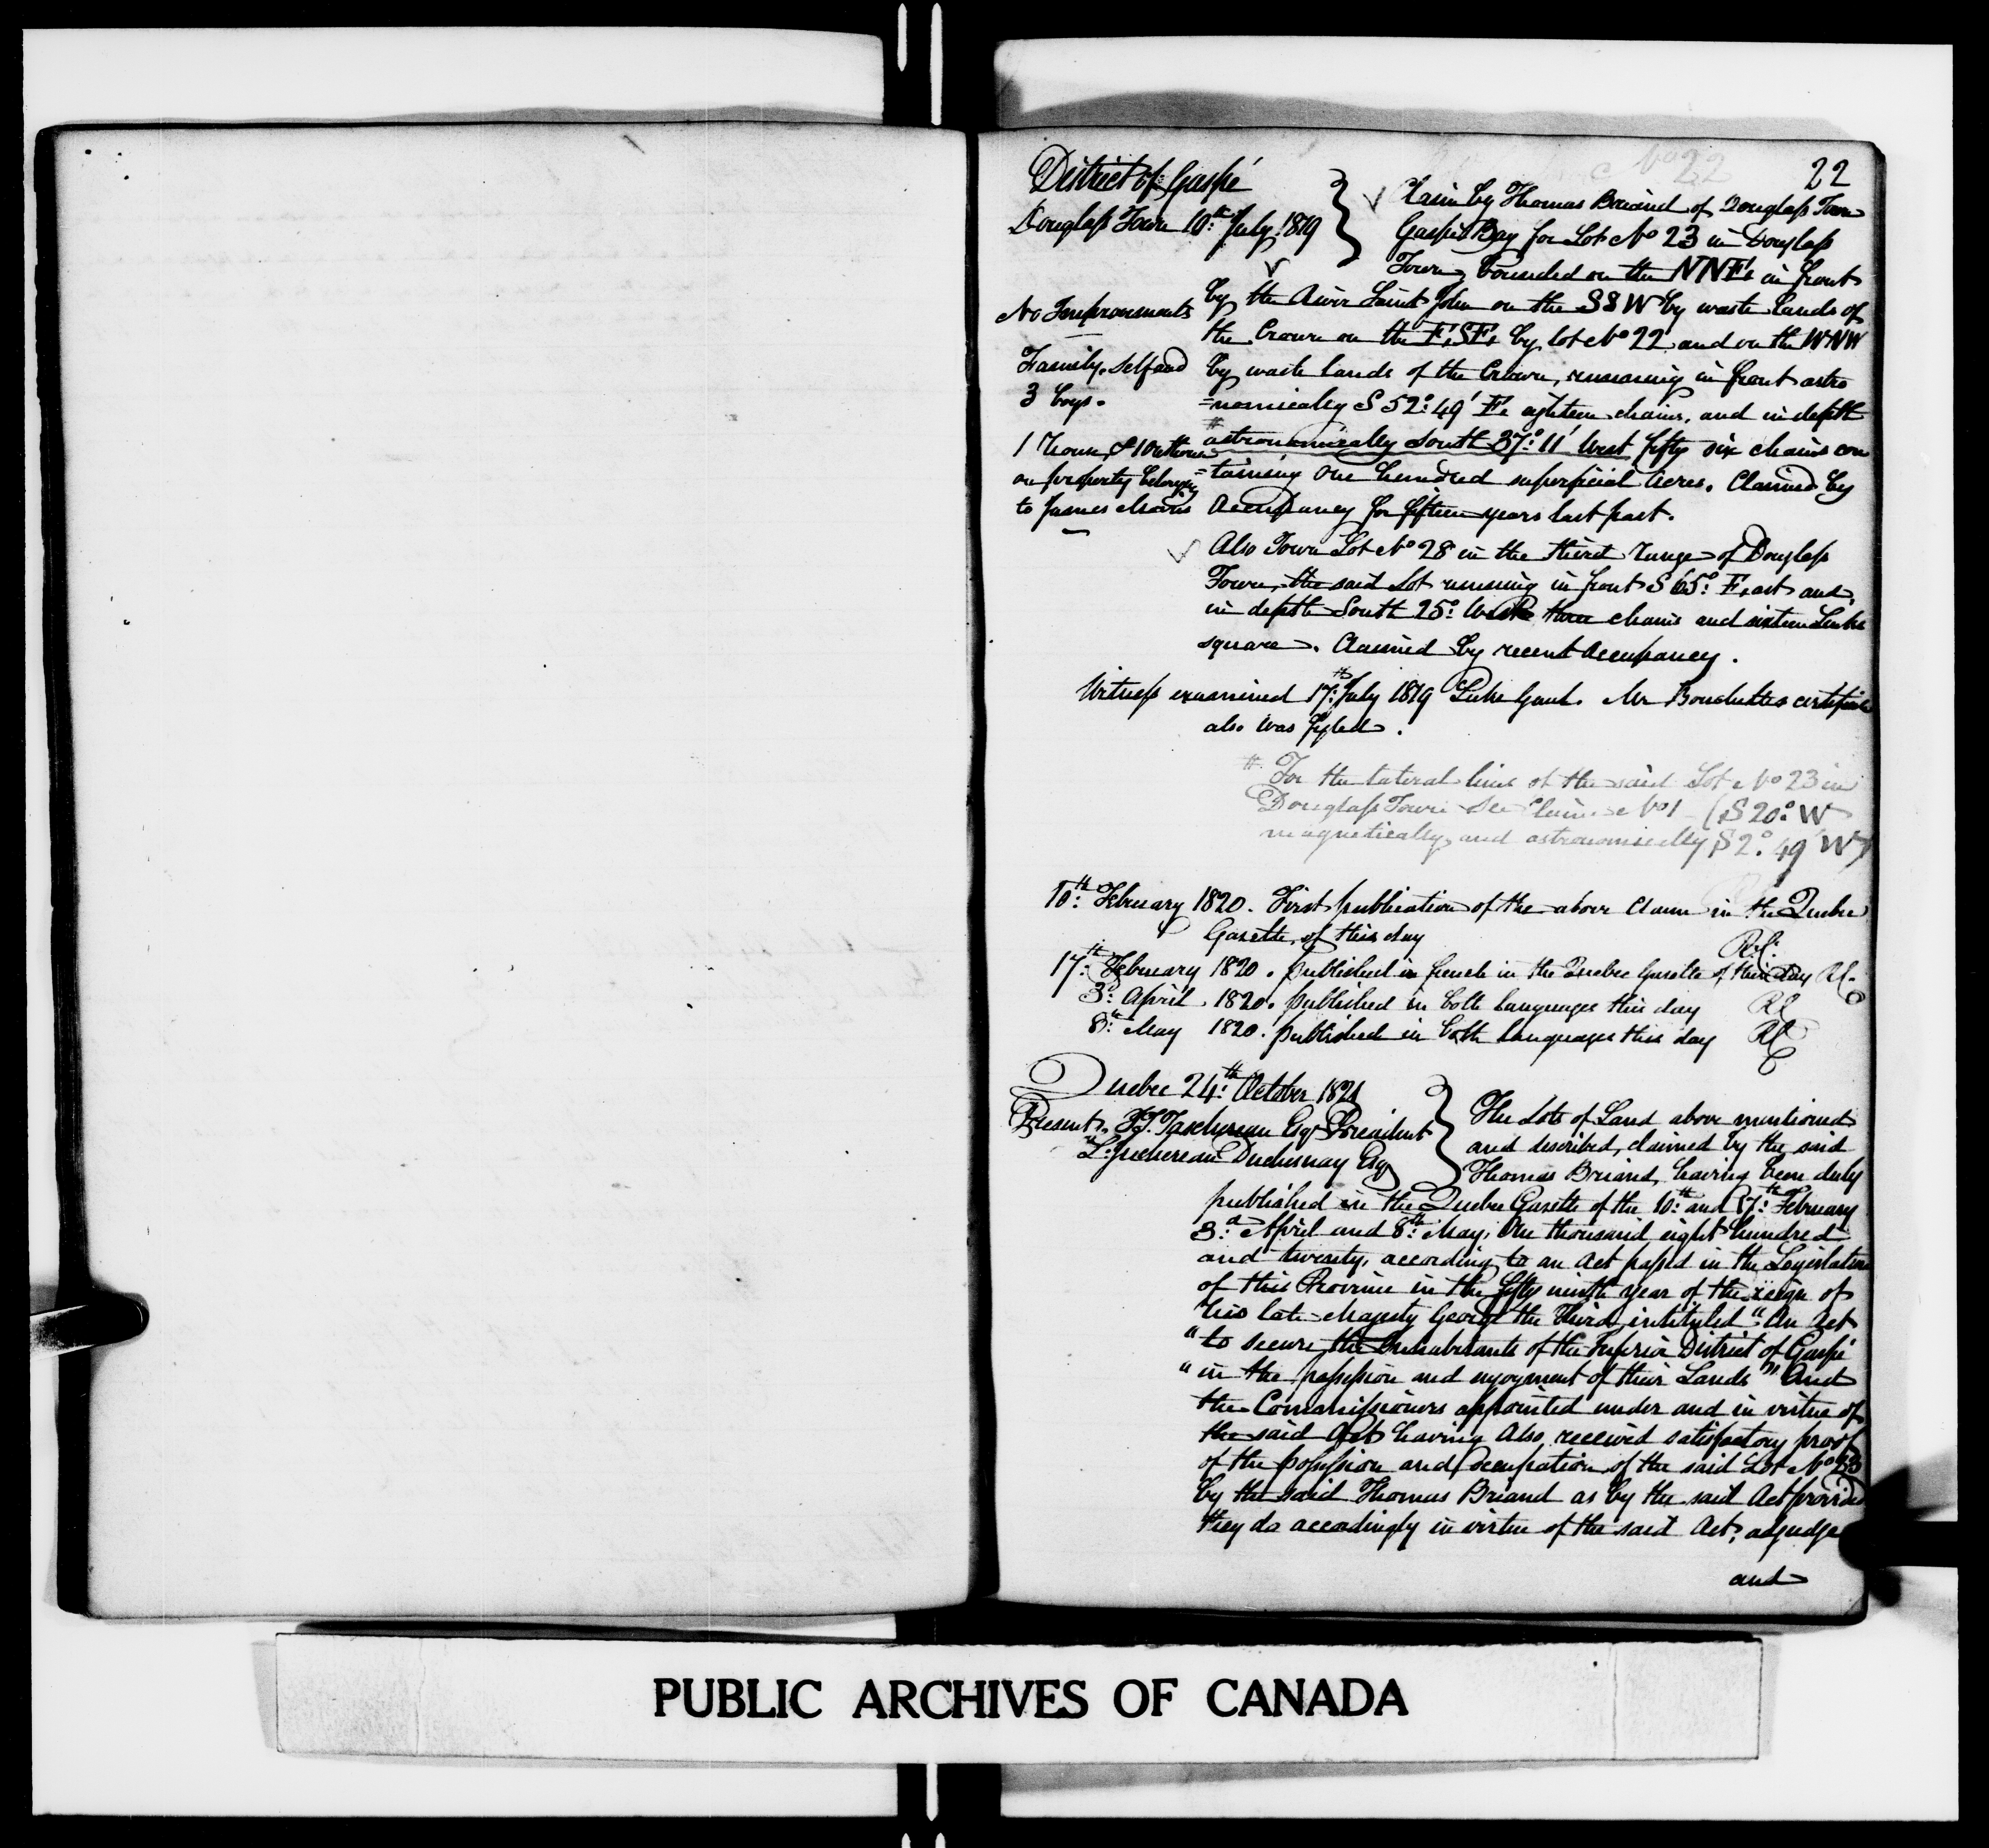 No 22
22
District of Gaspé
Douglass Town 10th July 1819
Claim by Thomas Briand of Douglass Town
Gaspé Bay for Lot No 23 in Douglass
Town, bounded on the NNE, in front
by the River Saint John on the SSW by waste Lands of
the Crown on the ESE, by lot No 22 and on the WNW
by waste lands of the Crown, running in front astro
=nomically S 52°: 49' E. eighteen chains, and in depth
# astronomically South 37°: 11' West fifty six chains con
=taining One hundred superficial Acres. Claimed by
Occupancy for fifteen years last past.
No Improvements
Family. Self and
3 boys.
1 House, & 1 Outhouse
on property belonging
to James
Also Town Lot No 28 in the third range of Douglass
Town, the said Lot running in front S 65°: East and
in depth South 25°: West three chains and sixteen Links
square. Claimed by recent Occupancy.
Witness examined 17th: July 1819 Luke Gaul. Mr Bouchettes certificate
also was fyled.
# For the lateral line of the said Lot No 23 in
Douglass Town see Claim No 1 (S 20°: W
magnetically, and astronomically S 2°. 49' W)
10th: February 1820. First publication of the above Claim in the Quebec
Gazette, of this day
17th: February 1820. published in french in the Quebec Gazette of this day
3d: April 1820. published in both languages this day
8th: May 1820. published in both languages this day
Quebec 24th: October 1821
Present, J.T. Taschereau Esqr President
L: Juchereau Duchesnay Esqr
The Lots of Land above mentioned
and described, claimed by the said
Thomas Briand, having been duly
published in the Quebec Gazette of the 10th: and 17th: February
3d: April and 8th: May, One thousand eight hundred
and twenty, according to an Act passed in the Legislature
of this Province in the fifty ninth year of the reign of
His late Majesty George the Third, intituled "An Act
"to secure the Inhabitants of the Inferior District of Gaspé
"in the possession and enjoyment of their Lands" And
the Commissioners appointed under and in virtue of
the said Act having Also received satisfactory proof
of the possession and Occupation of the said Lot No 23
by the said Thomas Briand as by the said Act provided
they do accordingly in virtue of the said Act, adjudge
and
PUBLIC ARCHIVES OF CANADA